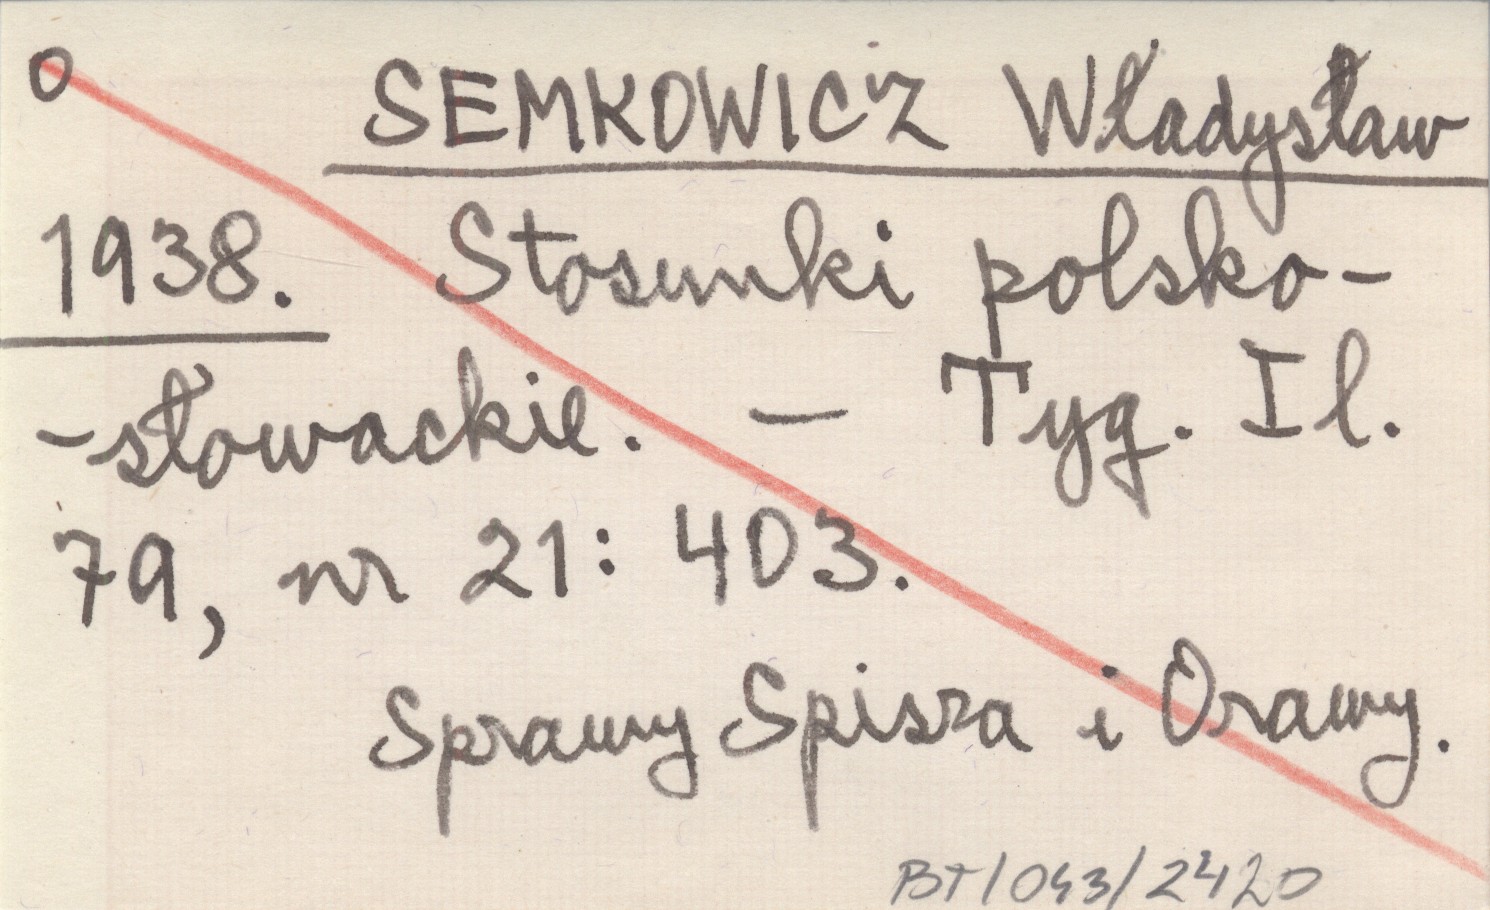 O SEMKOWICZ Władysław
1938. Stosunki polsko-
-słowackie. — Tyg. Il.
79, nr 21: 403.
Sprawy Spisza i Orawy.
BT/043/2420